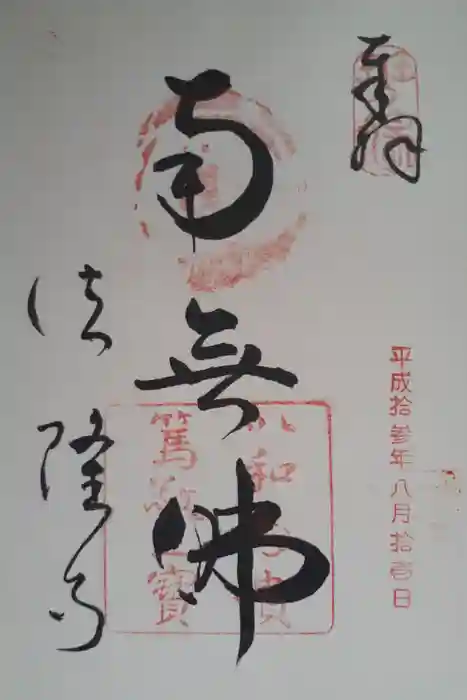 奉拝
平成拾参年八月拾壱日
南無佛
以和為貴
篤敬三寶
法隆寺